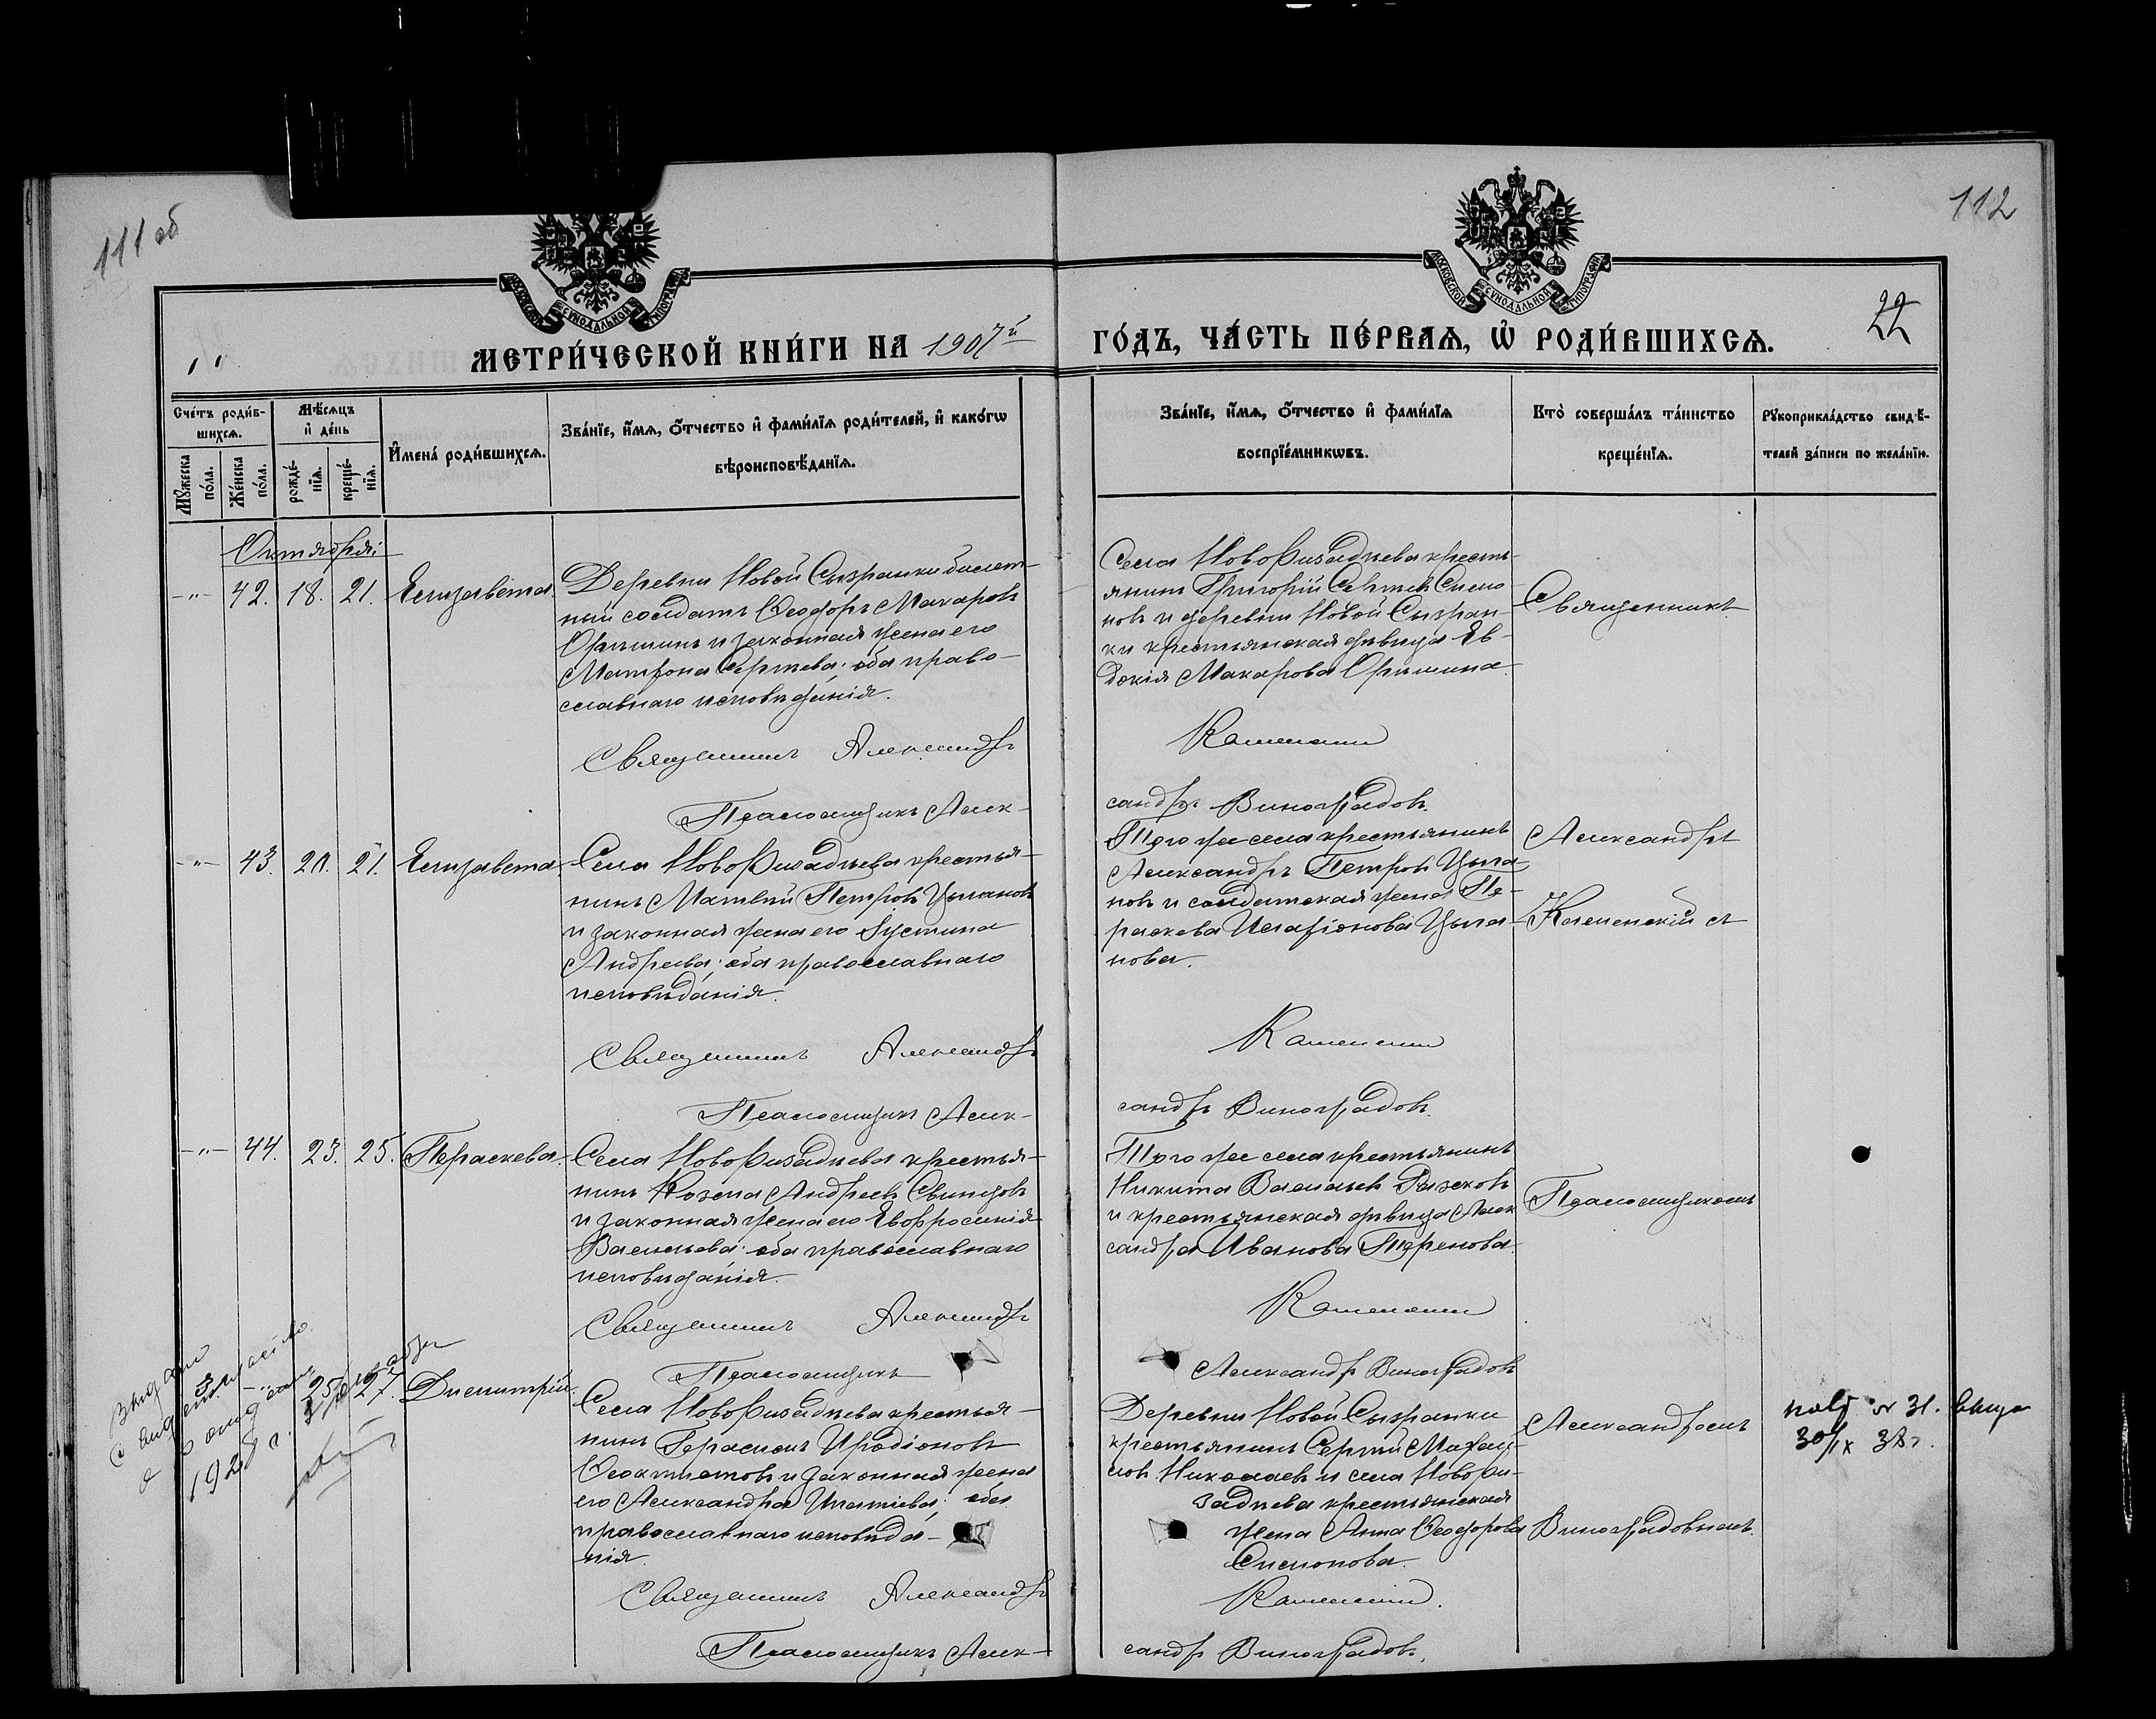 111 об
112
МОСКОВСКОЙ СѴНОДАЛЬНОЙ ТИПОГРАФІИ
МОСКОВСКОЙ СѴНОДАЛЬНОЙ ТИПОГРАФІИ
22
МЕТРИ́ЧЕСКОЙ КНИ́ГИ НА 1907й ГО́ДЪ, ЧА́СТЬ ПЕ́РВАѦ, Ѡ҆ РОДИ́ВШИХСѦ.
Сче́тъ роди́в-
шихсѧ.
Мꙋ́жеска
по́ла.
Же́нска
по́ла.
Мѣ́сѧцъ
и҆ де́нь
рожде́-
нїѧ.
креще́-
нїѧ.
И҆мена̀ роди́вшихсѧ.
Зва́нїе, и҆́мѧ, ѻ҆́тчество и҆ фами́лїѧ роди́телей, и҆ како́гѡ
вѣроисповѣ́данїѧ.
Зва́нїе, и҆́мѧ, ѻ҆́тчество и҆ фами́лїѧ
воспрїе́мникѡвъ.
Кто̀ соверша́лъ та́инство
креще́нїѧ.
Рꙋкоприкла́дство свидѣ́-
телей за́писи по жела́нїю.
Октября:
-"- 42. 18. 21. Елизавета
Деревни Новой Сызранки билет-
ный солдатъ Ѳеодоръ Макаровъ
и законная жена его
Матрона Сергѣева; оба право-
славнаго исповѣданія.
Священникъ Александръ
Псаломщикъ Алек-
Села Новофизадѣева кресть-
янинъ Григорій Симо-
новъ и деревни Новой Сызран-
ки крестьянская дѣвица Ев-
докія Макарова
Каменскій
сандръ Виноградовъ.
Священникъ
-"- 43. 20. 21. Елизавета
Села Новофизадѣева крестья-
нинъ Матвѣй Петровъ Цыгановъ
и законная жена его Іустина
Андреева; оба православнаго
исповѣданія.
Священникъ Александръ
Псаломщикъ Алек-
Того же села крестьянинъ
Александръ Петровъ Цыга-
новъ и солдатская жена Па-
раскева Иларіонова Цыга-
нова.
Каменскій
сандръ Виноградовъ.
Александръ
Каменскій съ
-"- 44. 23. 25. Параскева
Села Новофизадѣева крестья-
нинъ Козма Андреевъ Свинцовъ
и законная жена его Евфросинія
Васильева; оба православнаго
исповѣданія.
Священникъ Александръ
Псаломщикъ
Того же села крестьянинъ
Никита Васильевъ
и крестьянская дѣвица Алек
сандра Иванова Теренова.
Каменскій
Александръ Виноградовъ
Псаломщикомъ
25 27. Димитрій.
Села Новофизадѣева крестья-
нинъ Герасимъ Иродіоновъ
Ѳеоктистовъ и законная жена
его Александра Игнатіева; оба
православнаго исповѣда-
нія.
Священникъ Александръ
Псаломщикъ Алек-
Деревни Новой Сызранки
крестьянинъ Сергѣй Михай-
ловъ Николаевъ и села Новофи-
задѣева крестьянская
жена Анна Ѳеодорова
Симонова.
Каменскій.
сандръ Виноградовъ.
Александромъ
Виноградовымъ.
30/IX 38г.